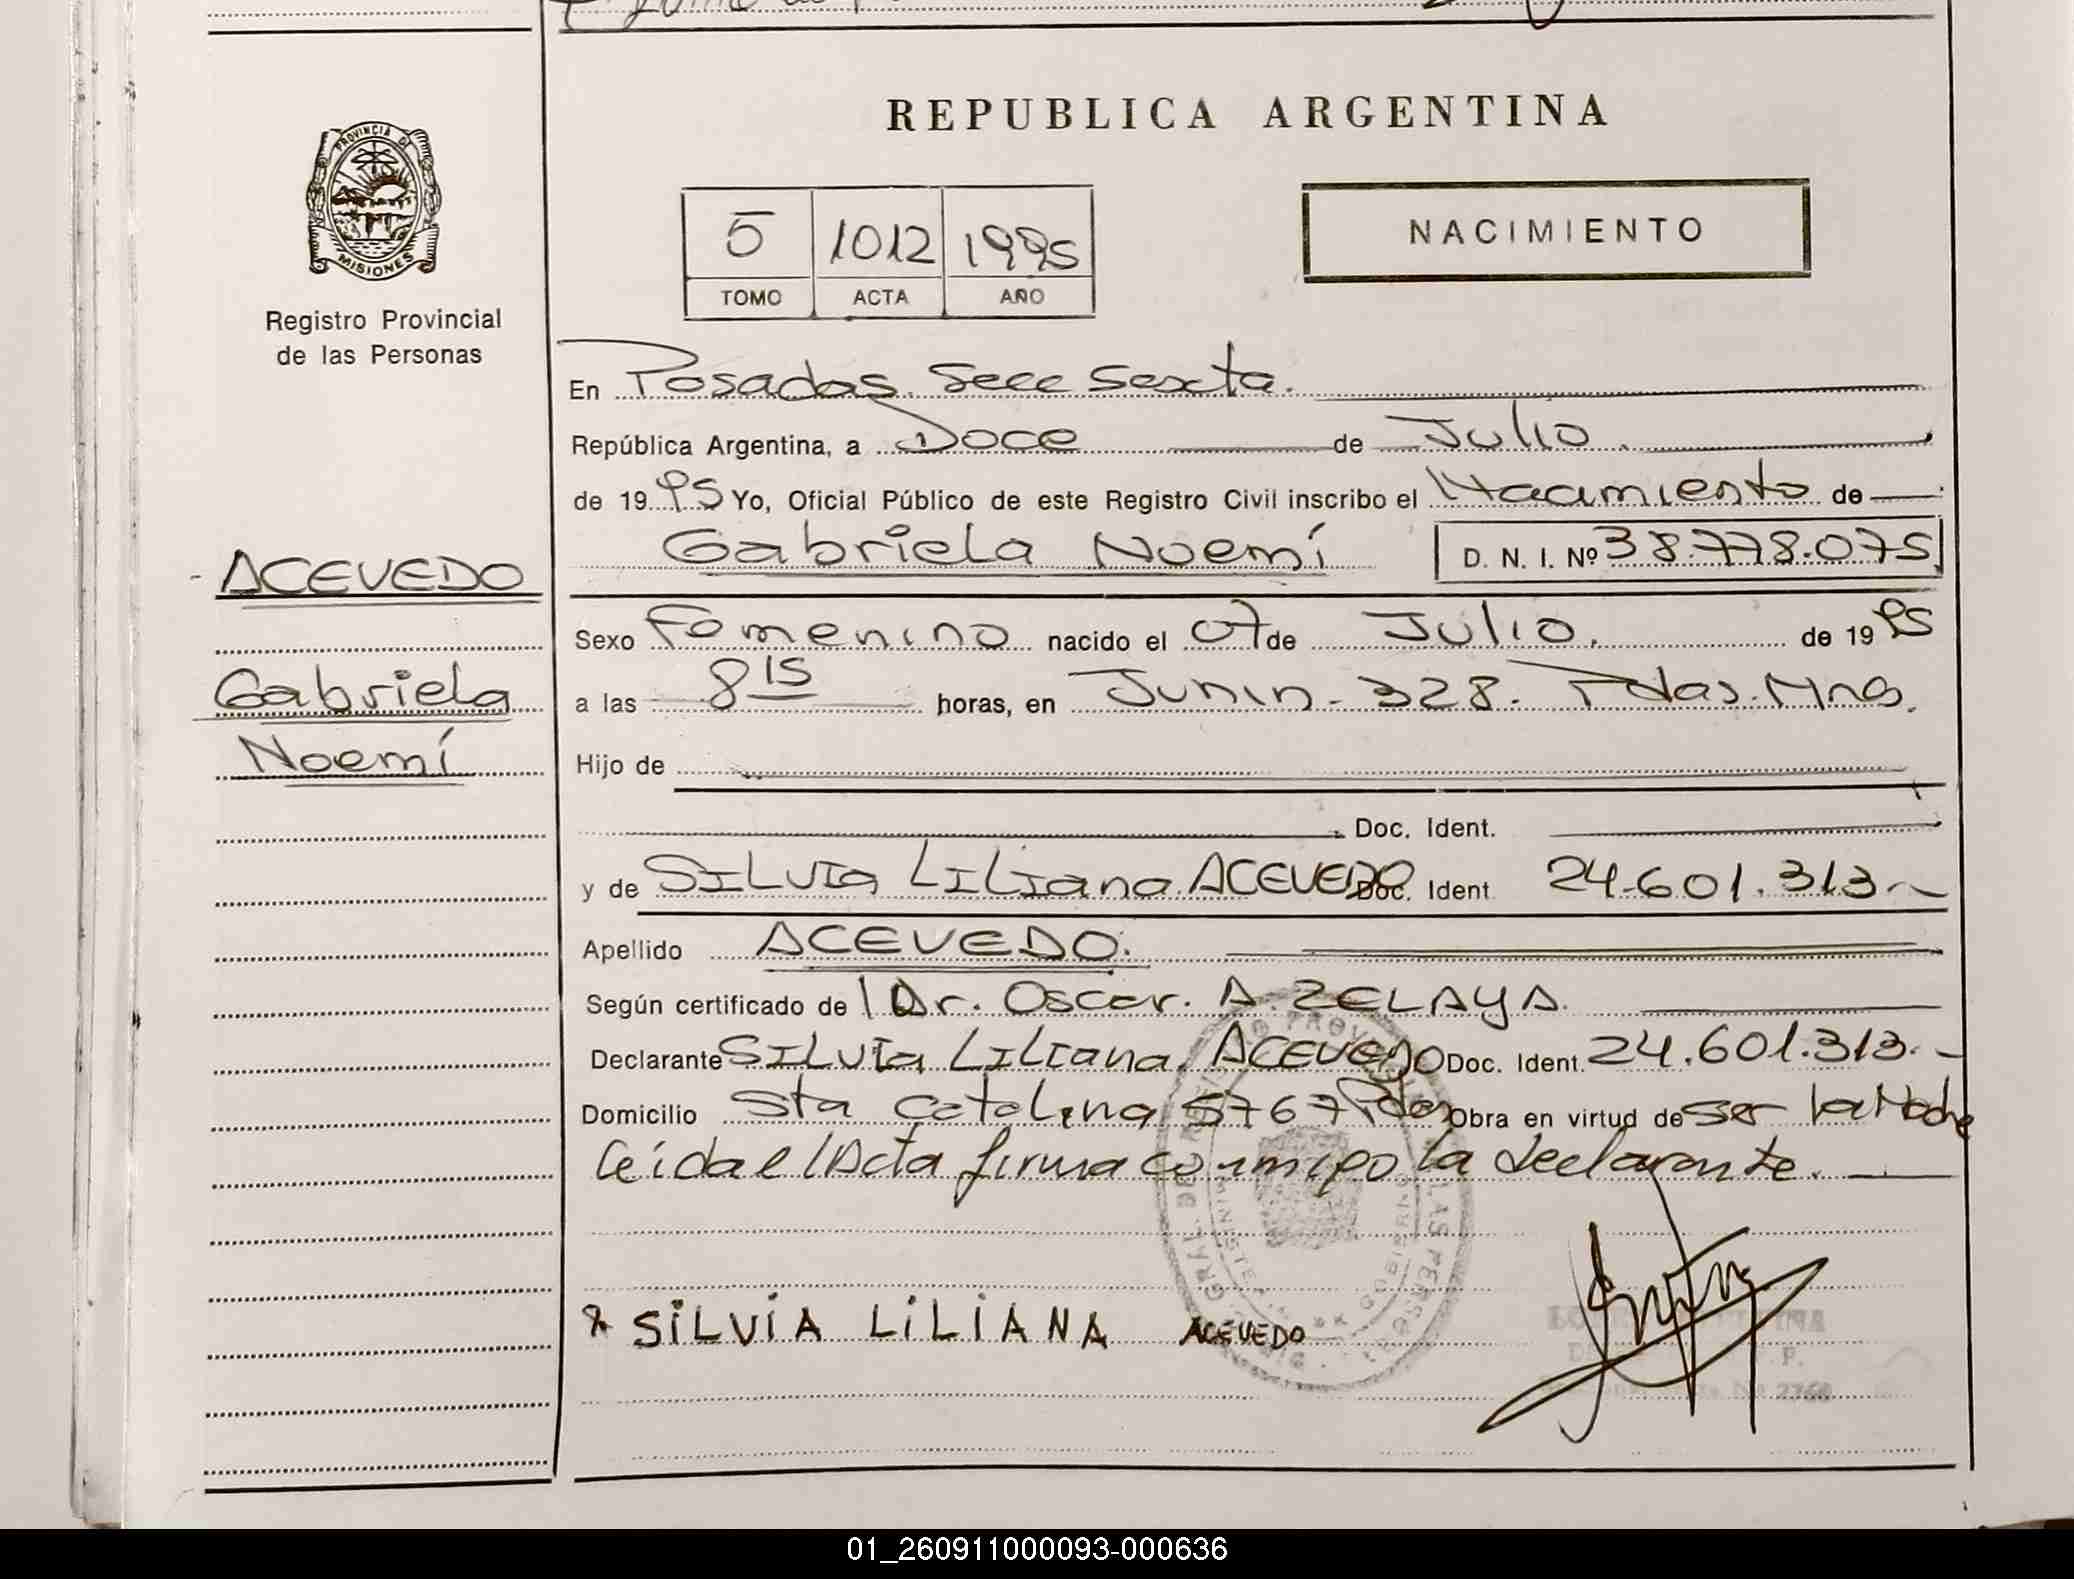 REPUBLICA ARGENTINA
PROVINCIA DE
MISIONES
Registro Provincial
de las Personas
NACIMIENTO
5 1012 1995
TOMO ACTA AÑO
En Posadas. Secc Sexta.
República Argentina, a Doce de Julio.
de 19 95 Yo, Oficial Público de este Registro Civil inscribo el Nacimiento de
Gabriela Noemí D. N. I. Nº 38.778.075
ACEVEDO
Gabriela
Noemí
Sexo Femenino nacido el 07 de Julio. de 19 95
a las 8 15 horas, en Junin - 328. Pdas. Mnes.
Hijo de
Doc. Ident.
y de SILVIa LILIana ACEVEDO Doc. Ident 24.601.313.-
Apellido ACEVEDO.
Según certificado de l Dr. Oscar. A. ZELAYA.
Declarante SILVIa LILIana ACEVEDO Doc. Ident. 24.601.313.-
Domicilio Sta Catalina 5767 Pdas Obra en virtud de ser la Madre
Leída el Acta firma conmigo la declarante.
x SiLViA LiLiANA ACEVEDO
2768
01_260911000093-000636